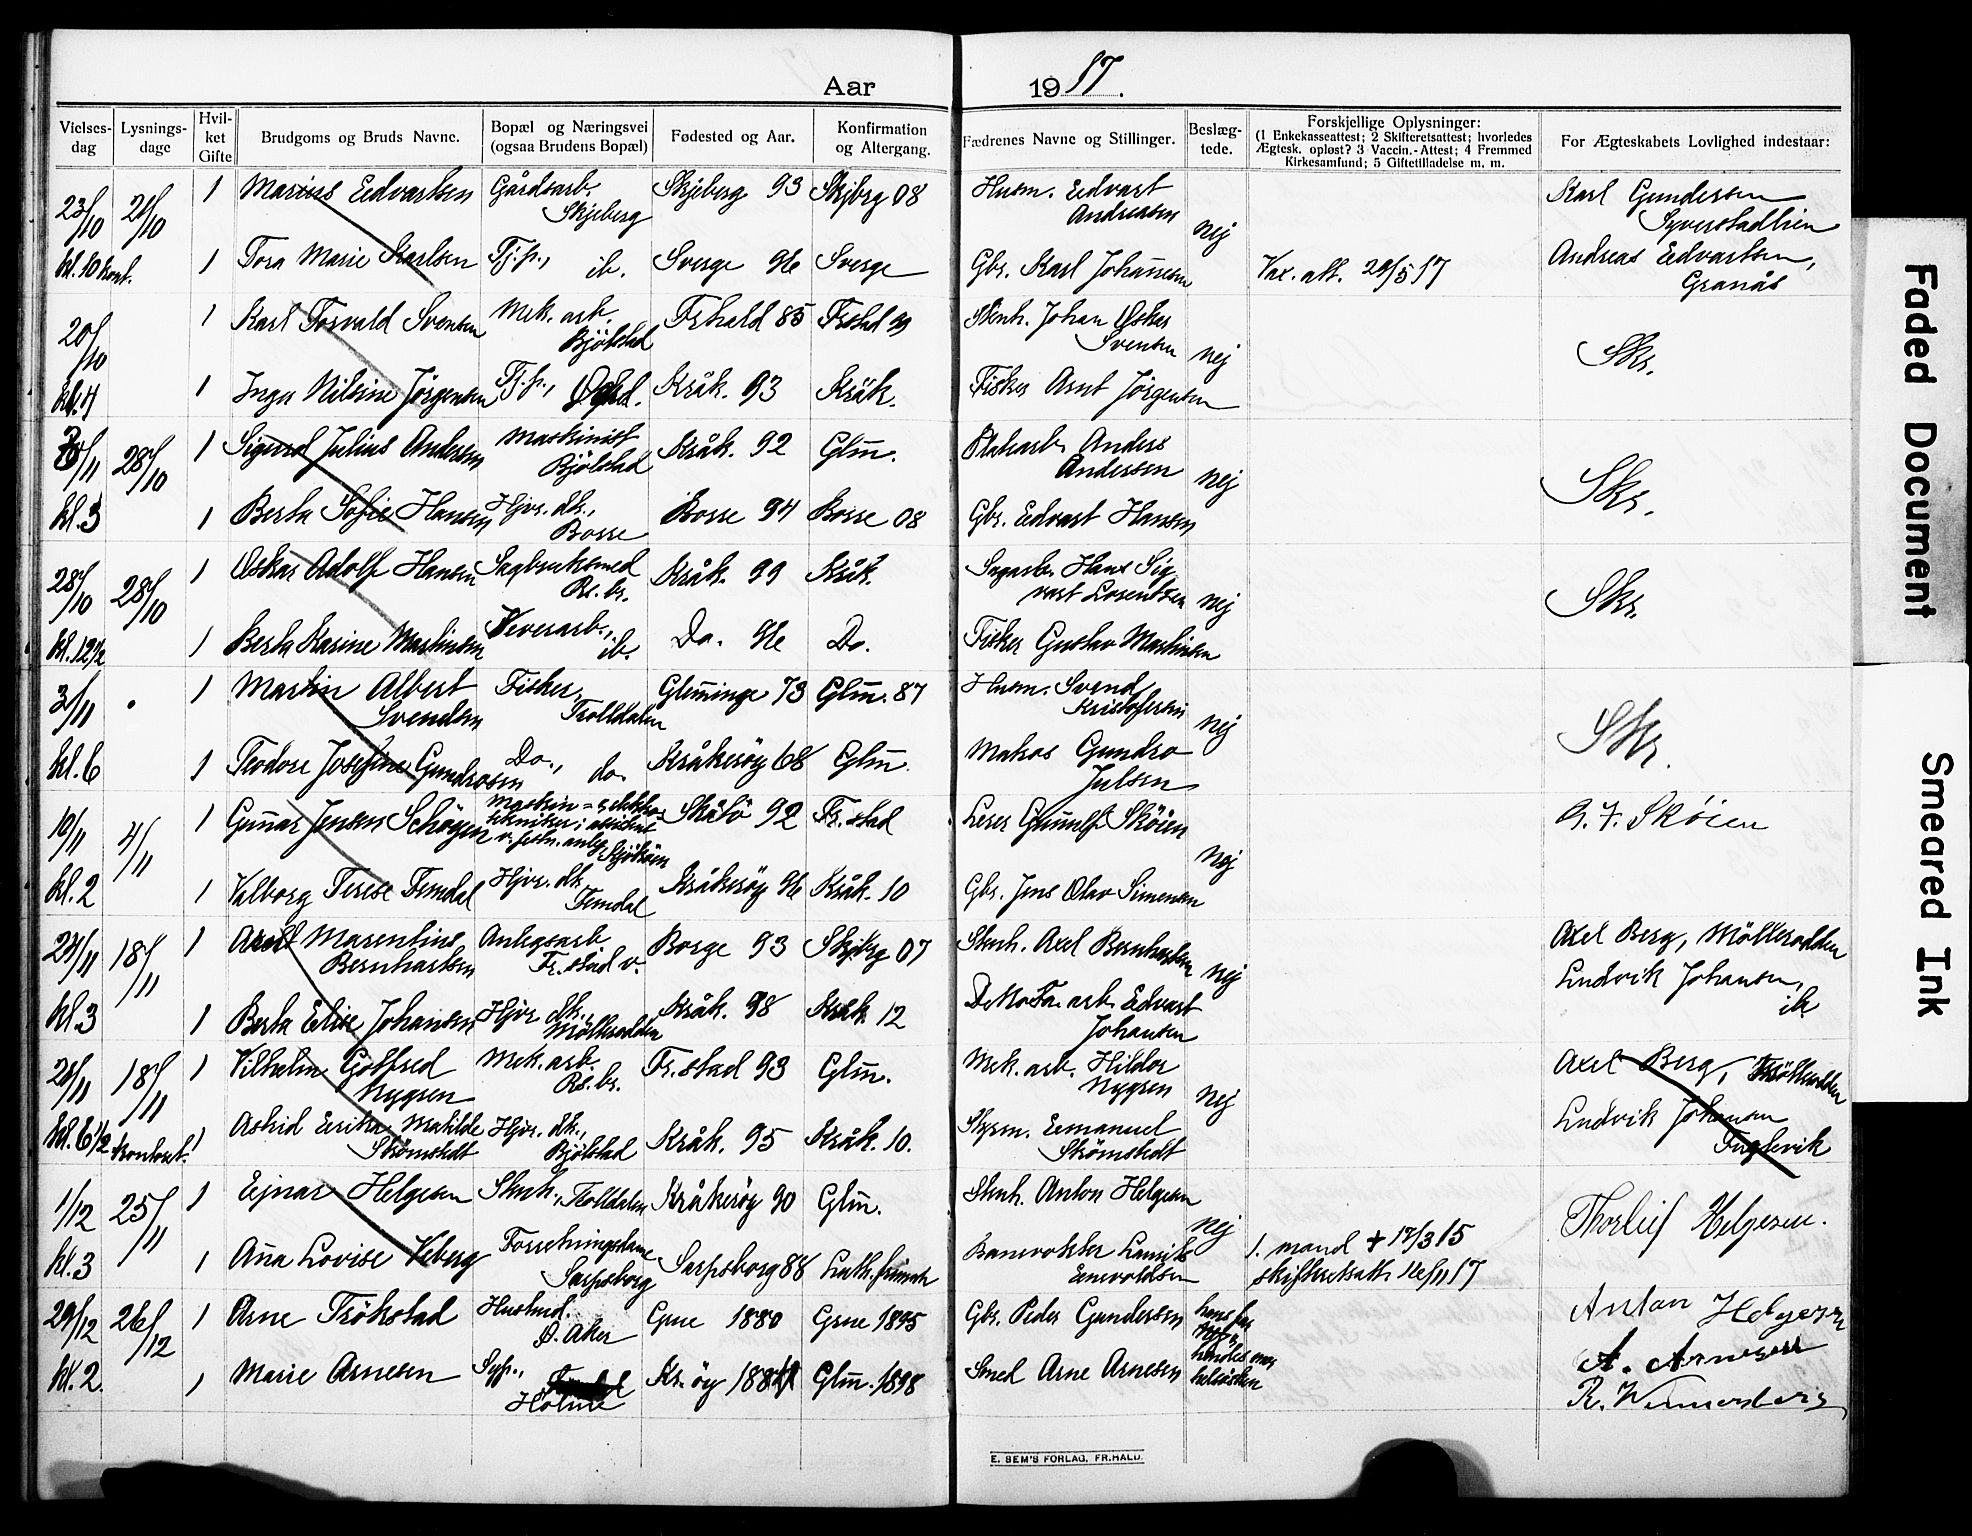 Aar 1917.
Vielses-dag
Lysnings-dage
Hvil-ket Gifte
Brudgoms og Bruds Navne.
Bopæl og Næringsvei (ogsaa Brudens Bopæl)
Fødested og Aar.
Konfirmation og Altergang.
Fædrenes Navne og Stillinger.
Beslæg-tede.
Forskjellige Oplysninger:
(1 Enkekasseattest; 2 Skifteretsattest; hvorledes
Ægtesk. opløst? 3 Vaccin.-Attest; 4 Fremmed
Kirkesamfund; 5 Giftetilladelse m. m.
For Ægteskabets Lovlighed indestaar:
23/10 21/10 1 Marius Edvartsen Gårdsarb. Skjeberg Skjeberg 93 Skjbrg 08 Husm. Edvart Andreasen nej Karl Gundersen Syverstadlien
kl. 10 kont. 1 Tora Marie Karlsen Tj.p., ib. Sverge 96 Sverge Gbr. Karl Johannesen Vax. att. 29/5 17 Andreas Edvartsen, Granås
20/10 1 Karl Torvald Svensen Mek. arb. Bjölstad Frhald 85 Frstad 99 Stenh. Johan Oskar Svensen nej Skr.
kl. 4 1 Inga Nilsine Jörgensen Tj.p., Kråk. 93 Kråk. Fisker Arnt Jörgensen
/11 28/10 1 Sigurd Julius Andersen Maskinist Bjölstad Kråk. 92 Glm. Anders Andersen nej Skr.
kl. 3 1 Berta Sofie Hansen Hjvr. dtr., Borge Borge 94 Borge 08 Gbr. Edvart Hansen
28/10 28/10 1 Oskar Adolf Hansen Sagbruksmed Rs. br. Kråk. 99 Kråk. Sagarb. Hans Sigvart Lorentsen nej Skr.
kl. 12 1/2 1 Berta Karine Martinsen Veverarb., ib. Do. 96 Do. Fisker Gustav Martinsen
3/11 1 Martin Albert Svendsen Fisker, Trolldalen Glemminge 73 Glm. 87 Husm. Svend Kristofersen nej Skr.
kl. 6 1 Teodore Josefine Gundrosen Do., do. Kråkeröy 68 Glm. Matros Gundro Julsen
10/11 4/11 1 Gunnar Jensen Schøyen Maskin- & elektrotekniker; assistent v. festn. anleg Kjökøen Skåtö 92 Fr.stad Lerer Gunnulf Sköien nej G. F. Skøien
kl. 2 1 Valborg Terese Femdal Hjvr. dtr. Femdal Kråkeröy 96 Kråk. 10 Gbr. Jens Olav Simensen
24/11 18/11 1 Axel Marentius Bernhartsen Anlegsarb. Fr.stad v. Borge 93 Skjbrg 07 Stenh. Axel Bernhartsen nej Axel Berg, Möllerodden
kl. 3 1 Berta Elise Johansen Hjvr. dtr., Möllerodden Kråk. 98 Kråk. 12 arb. Edvart Johansen Ludvik Johansen, ib
/11 18/11 1 Vilhelm Gotfred Nygren Mek. arb. Rs. br. Fr.stad 93 Glm. Mek. arb. Hildor Nygren nej Axel Berg, Möllerodden
kl. 6 1/2 kontoret. 1 Astrid Erika Matilde Strömstedt Hjvr. dtr., Bjölstad Kråk. 95 Kråk. 10. Styrm. Emanuel Strömstedt Ludvik Johansen Fuglevik
1/12 25/11 1 Ejnar Helgesen Stenh., Trolldalen Kråkeröy 90 Glm. Stenh. Anton Helgesen nej Thorleif Helgesen.
kl. 3 1 Anna Lovise Veberg Forretningsdame Sarpsborg Sarpsborg 88 Luth. frimenh Banevokter Laurits Enevoldsen 1. mand + 17/3 15 skifteretsatt. 16/11 17
29/12 26/12 1 Arne Trökstad Husmd. Ö. Aker Grue 1880 Grue 1895 Gbr. Peder Gundersen hans far og hendes mor helsösken Anton Helgesen
kl. 2. 1 Marie Arnesen Syp., Holme Kr. öy 188 Glm. 1898 Smed Arne Arnesen A. Arnesen
R. Wennersberg
E. SEM'S FORLAG, FR.HALD.
Faded Document
Smeared Ink